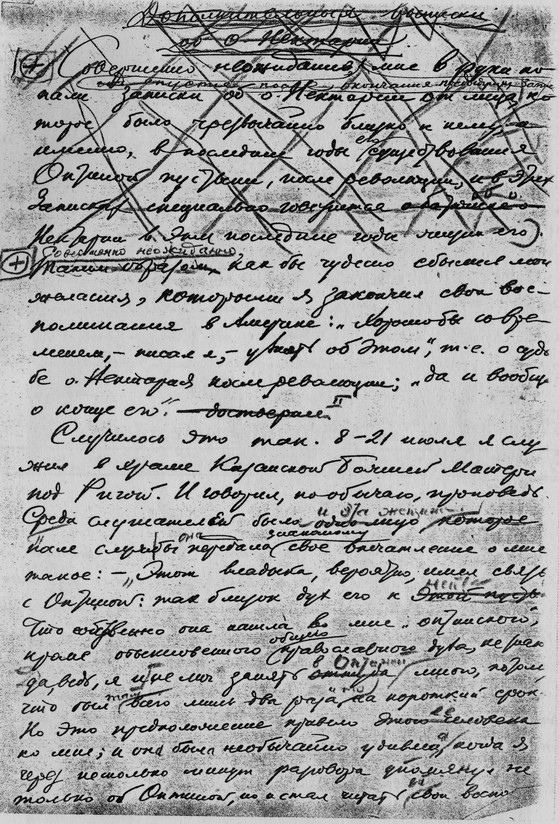 Дополнительные выписки
об о. Нектарии
Совершенно неожиданно мне в руки по-
пали записки об о. Нектарии от лица, ко-
торое было чрезвычайно близко к нему, а
именно, в последние годы существования
Оптиной пустыни, после революции, и в этих
записках специально говорится
Нектарии в эти последние годы жизни его).
Совершенно неожиданно
Таким образом, как бы чудесно сбылись мои
желания, которыми я закончил свои вос-
поминания в Америке: „Хорошо бы со вре-
менем, – писал я, – узнать об этом“, т.е. о судь
бе о. Нектария после революции; „да и вообще
о конце его“.
Случилось это так. 8–21 июля я слу
жил в храме Казанской Божией Матери
под Ригой. И говорил, по обычаю, проповедь
и эта женщина
Среди слушателей было одно лицо, которое
она знакомому
после службы передала свое впечатление о мне
такое: – „Этот владыка, вероятно, имел связь
с Оптиной: так близок дух его к
Что собственно она нашла во мне „оптинского“,
общего
кроме обыкновенного православного духа, не
в Оптиной
да, ведь, я и не мог занять много, потом
там
что был всего лишь два раза, на короткий срок.
Но это предположение привело этого человека
ко мне; и она была необычайно удивлена, когда я
через несколько минут разговора упомянул не
только об Оптиной, но и стал читать свои воспо